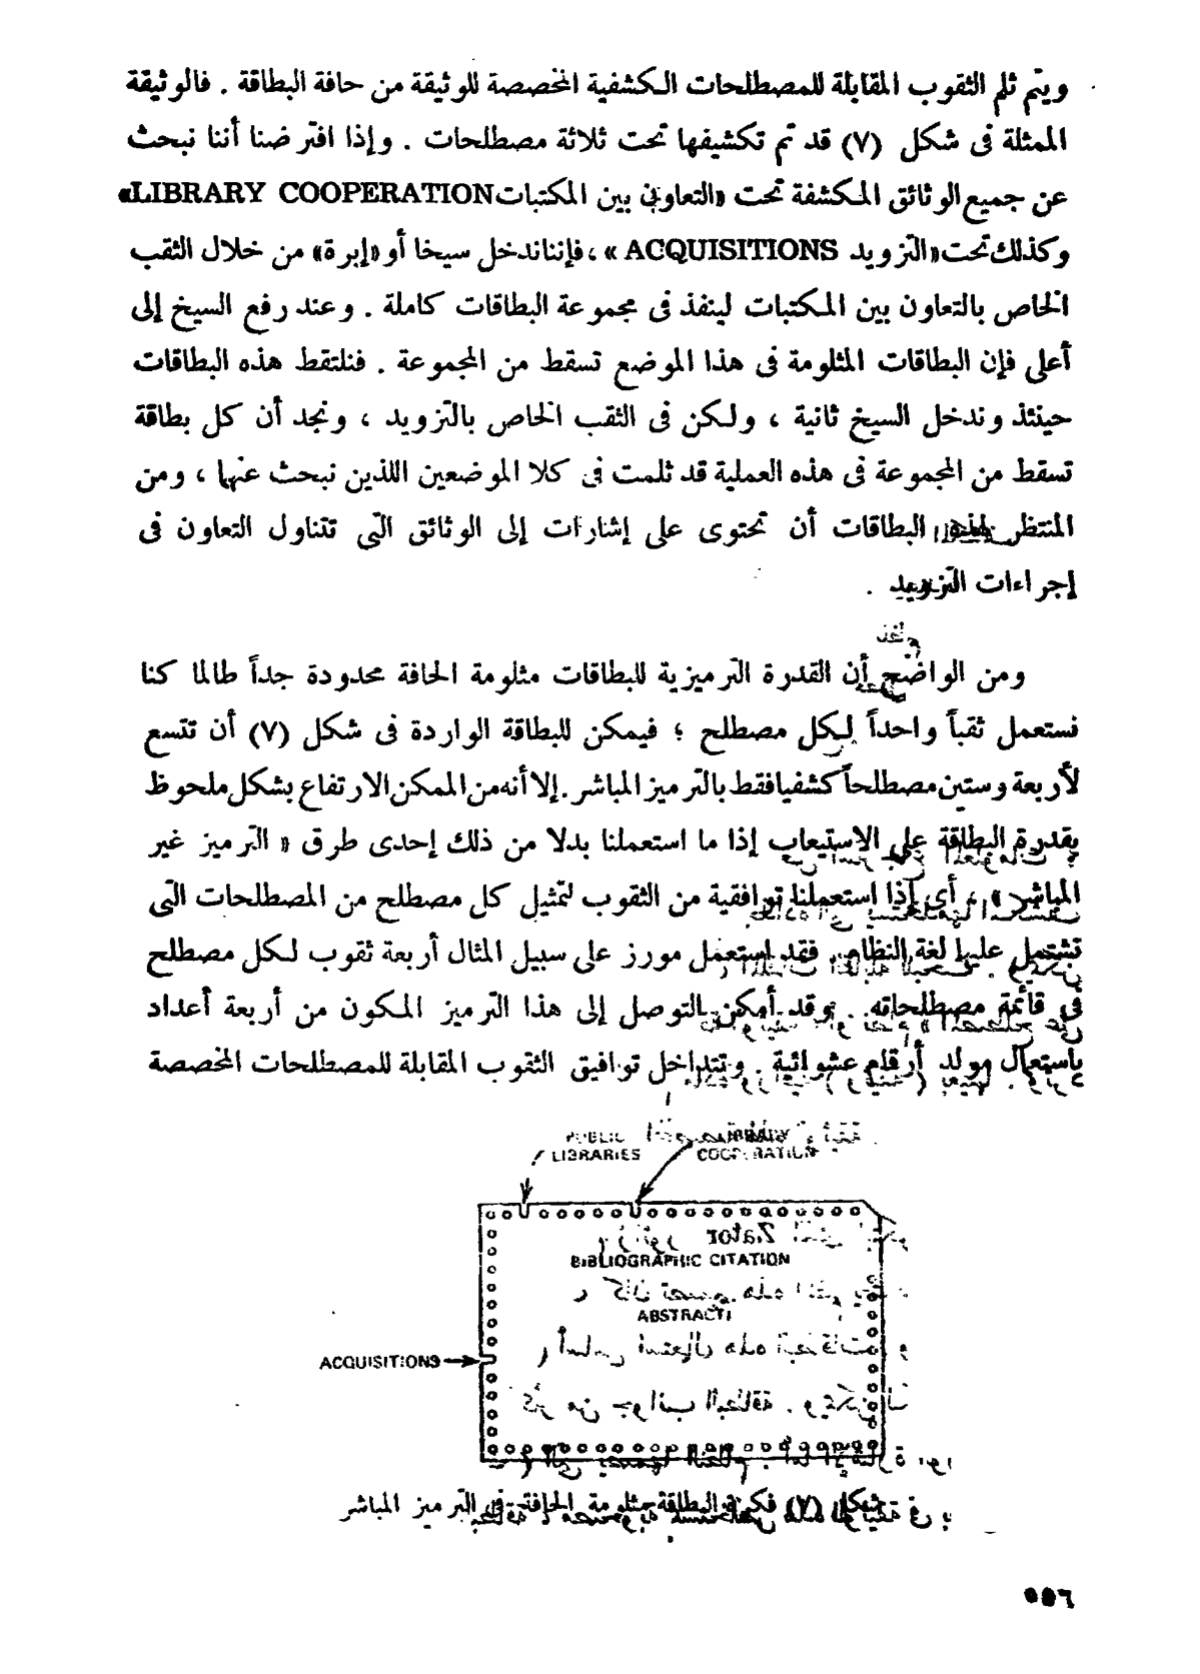 ويتم ثلم الثقوب المقابلة للمصطلحات الكشفية المخصصة للوثيقة من حافة البطاقة . فالوثيقة
الممثلة فى شكل (٧) قد تم تكشيفها تحت ثلاثة مصطلحات . وإذا افترضنا أننا نبحث
عن جميع الوثائق المكشفة تحت «التعاون بين المكتبات LIBRARY COOPERATION»
وكذلك تحت «التزويد ACQUISITIONS » ، فإننا ندخل سيخا أو «إبرة» من خلال الثقب
الخاص بالتعاون بين المكتبات لينفذ فى مجموعة البطاقات كاملة . وعند رفع السيخ إلى
أعلى فإن البطاقات المثلومة فى هذا الموضع تسقط من المجموعة . فنلتقط هذه البطاقات
حينئذ وندخل السيخ ثانية ، ولكن فى الثقب الخاص بالتزويد ، ونجد أن كل بطاقة
تسقط من المجموعة فى هذه العملية قد ثلمت فى كلا الموضعين اللذين نبحث عنهما ، ومن
المنتظر لهذه البطاقات أن تحتوى على إشارات إلى الوثائق التى تتناول التعاون فى
إجراءات التزويد .
ومن الواضح أن القدرة الترميزية للبطاقات مثلومة الحافة محدودة جداً طالما كنا
نستعمل ثقباً واحداً لكل مصطلح ؛ فيمكن للبطاقة الواردة فى شكل (٧) أن تتسع
لأربعة وستين مصطلحاً كشفيا فقط بالترميز المباشر . إلا أنه من الممكن الارتفاع بشكل ملحوظ
بقدرة البطاقة على الاستيعاب إذا ما استعملنا بدلا من ذلك إحدى طرق « الترميز غير
المباشر » ، أى إذا استعملنا توافقية من الثقوب لتمثيل كل مصطلح من المصطلحات التى
تشتمل عليها لغة النظام . فقد استعمل مورز على سبيل المثال أربعة ثقوب لكل مصطلح
فى قائمة مصطلحاته . وقد أمكن التوصل إلى هذا الترميز المكون من أربعة أعداد
باستعمال مولد أرقام عشوائية . وتتداخل توافيق الثقوب المقابلة للمصطلحات المخصصة
PUBLIC LIBRARIES
LIBRARY COOPERATION
BIBLIOGRAPHIC CITATION
ABSTRACT
ACQUISITIONS
شكل (٧) فكرة البطاقة مثلومة الحافة فى الترميز المباشر
٥٥٦